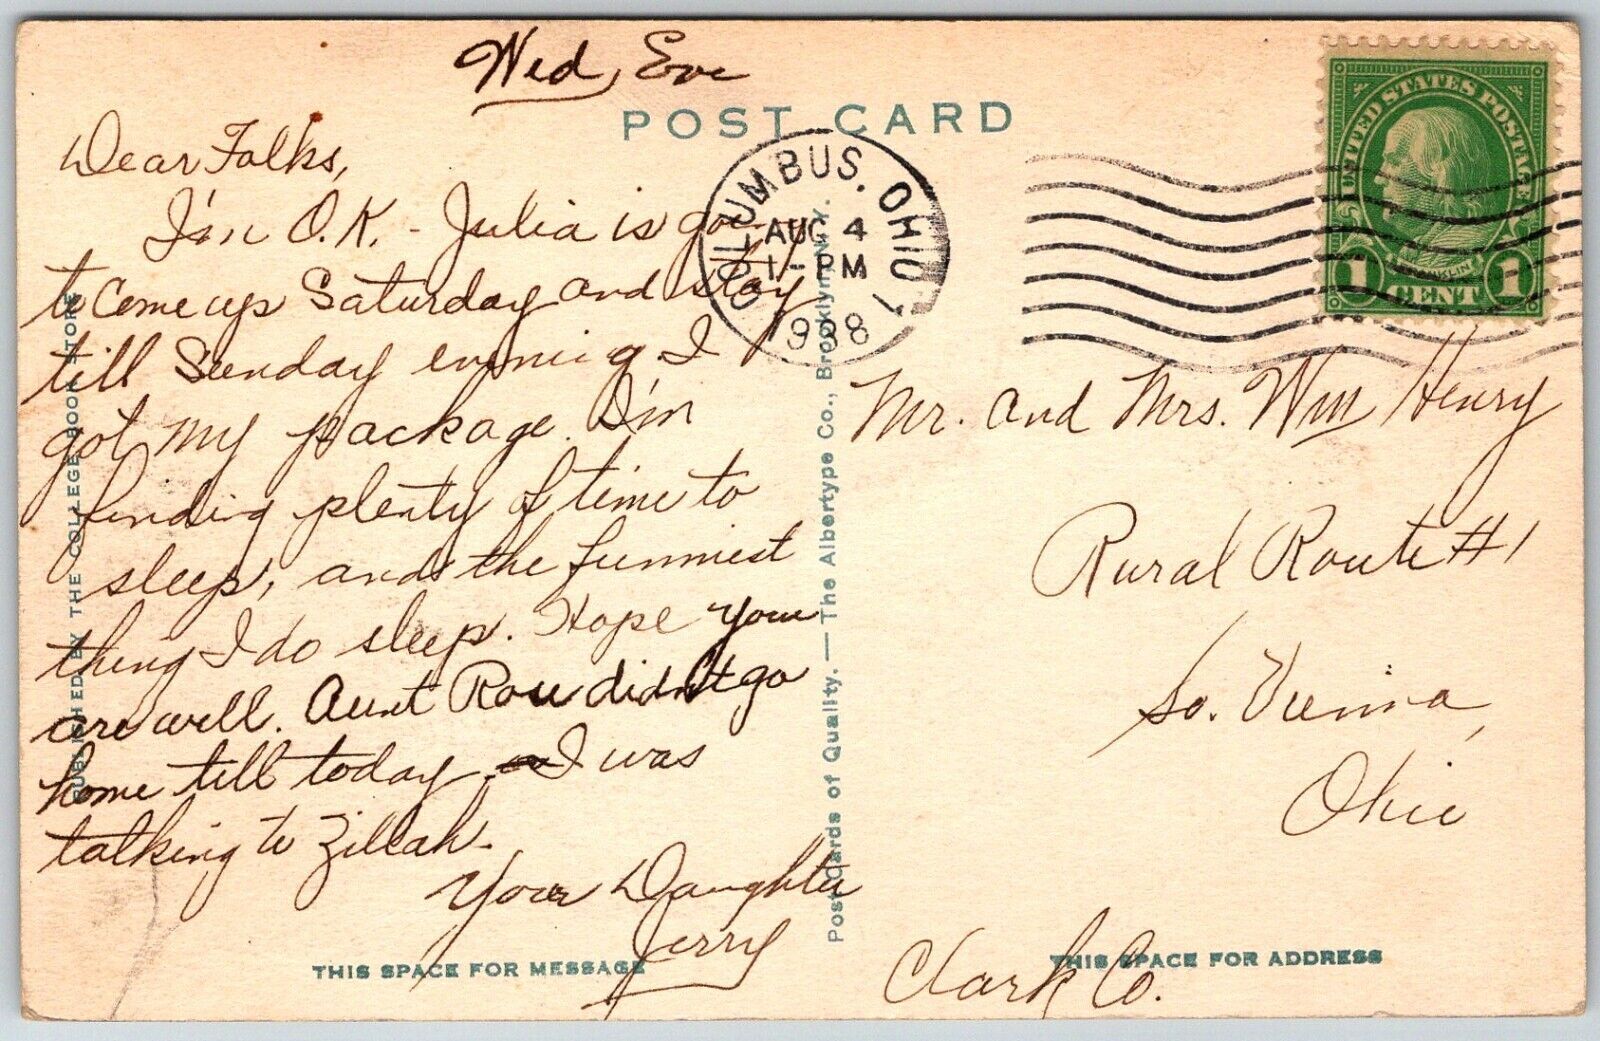 Wed, Eve
POST CARD
Dear Folks,
I'm O.K. - Julia is going
to come up Saturday and stay
till Sunday evening I
got my package. I'm
finding plenty of time to
sleep, and the funniest
thing I do sleep. Hope you
are well. Aunt Rose didn't go
home till today - I was
talking to Zillah.
Your Daughter
Jerry
THIS SPACE FOR MESSAGE
PUBLISHED BY THE COLLEGE BOOK STORE
Post Cards of Quality. — The Albertype Co., Brooklyn, N.Y.
COLUMBUS, OHIO 1
AUG 4
1-PM
1938
UNITED STATES POSTAGE
FRANKLIN
1 CENT 1
Mr. and Mrs. Wm Henry
Rural Route #1
So. Vienna,
Ohio
Clark Co.
THIS SPACE FOR ADDRESS